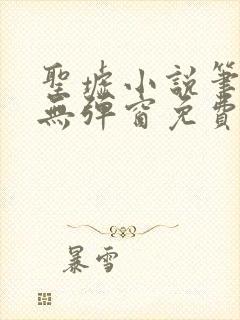 聖墟小說筆
無彈窗免費
暴雪